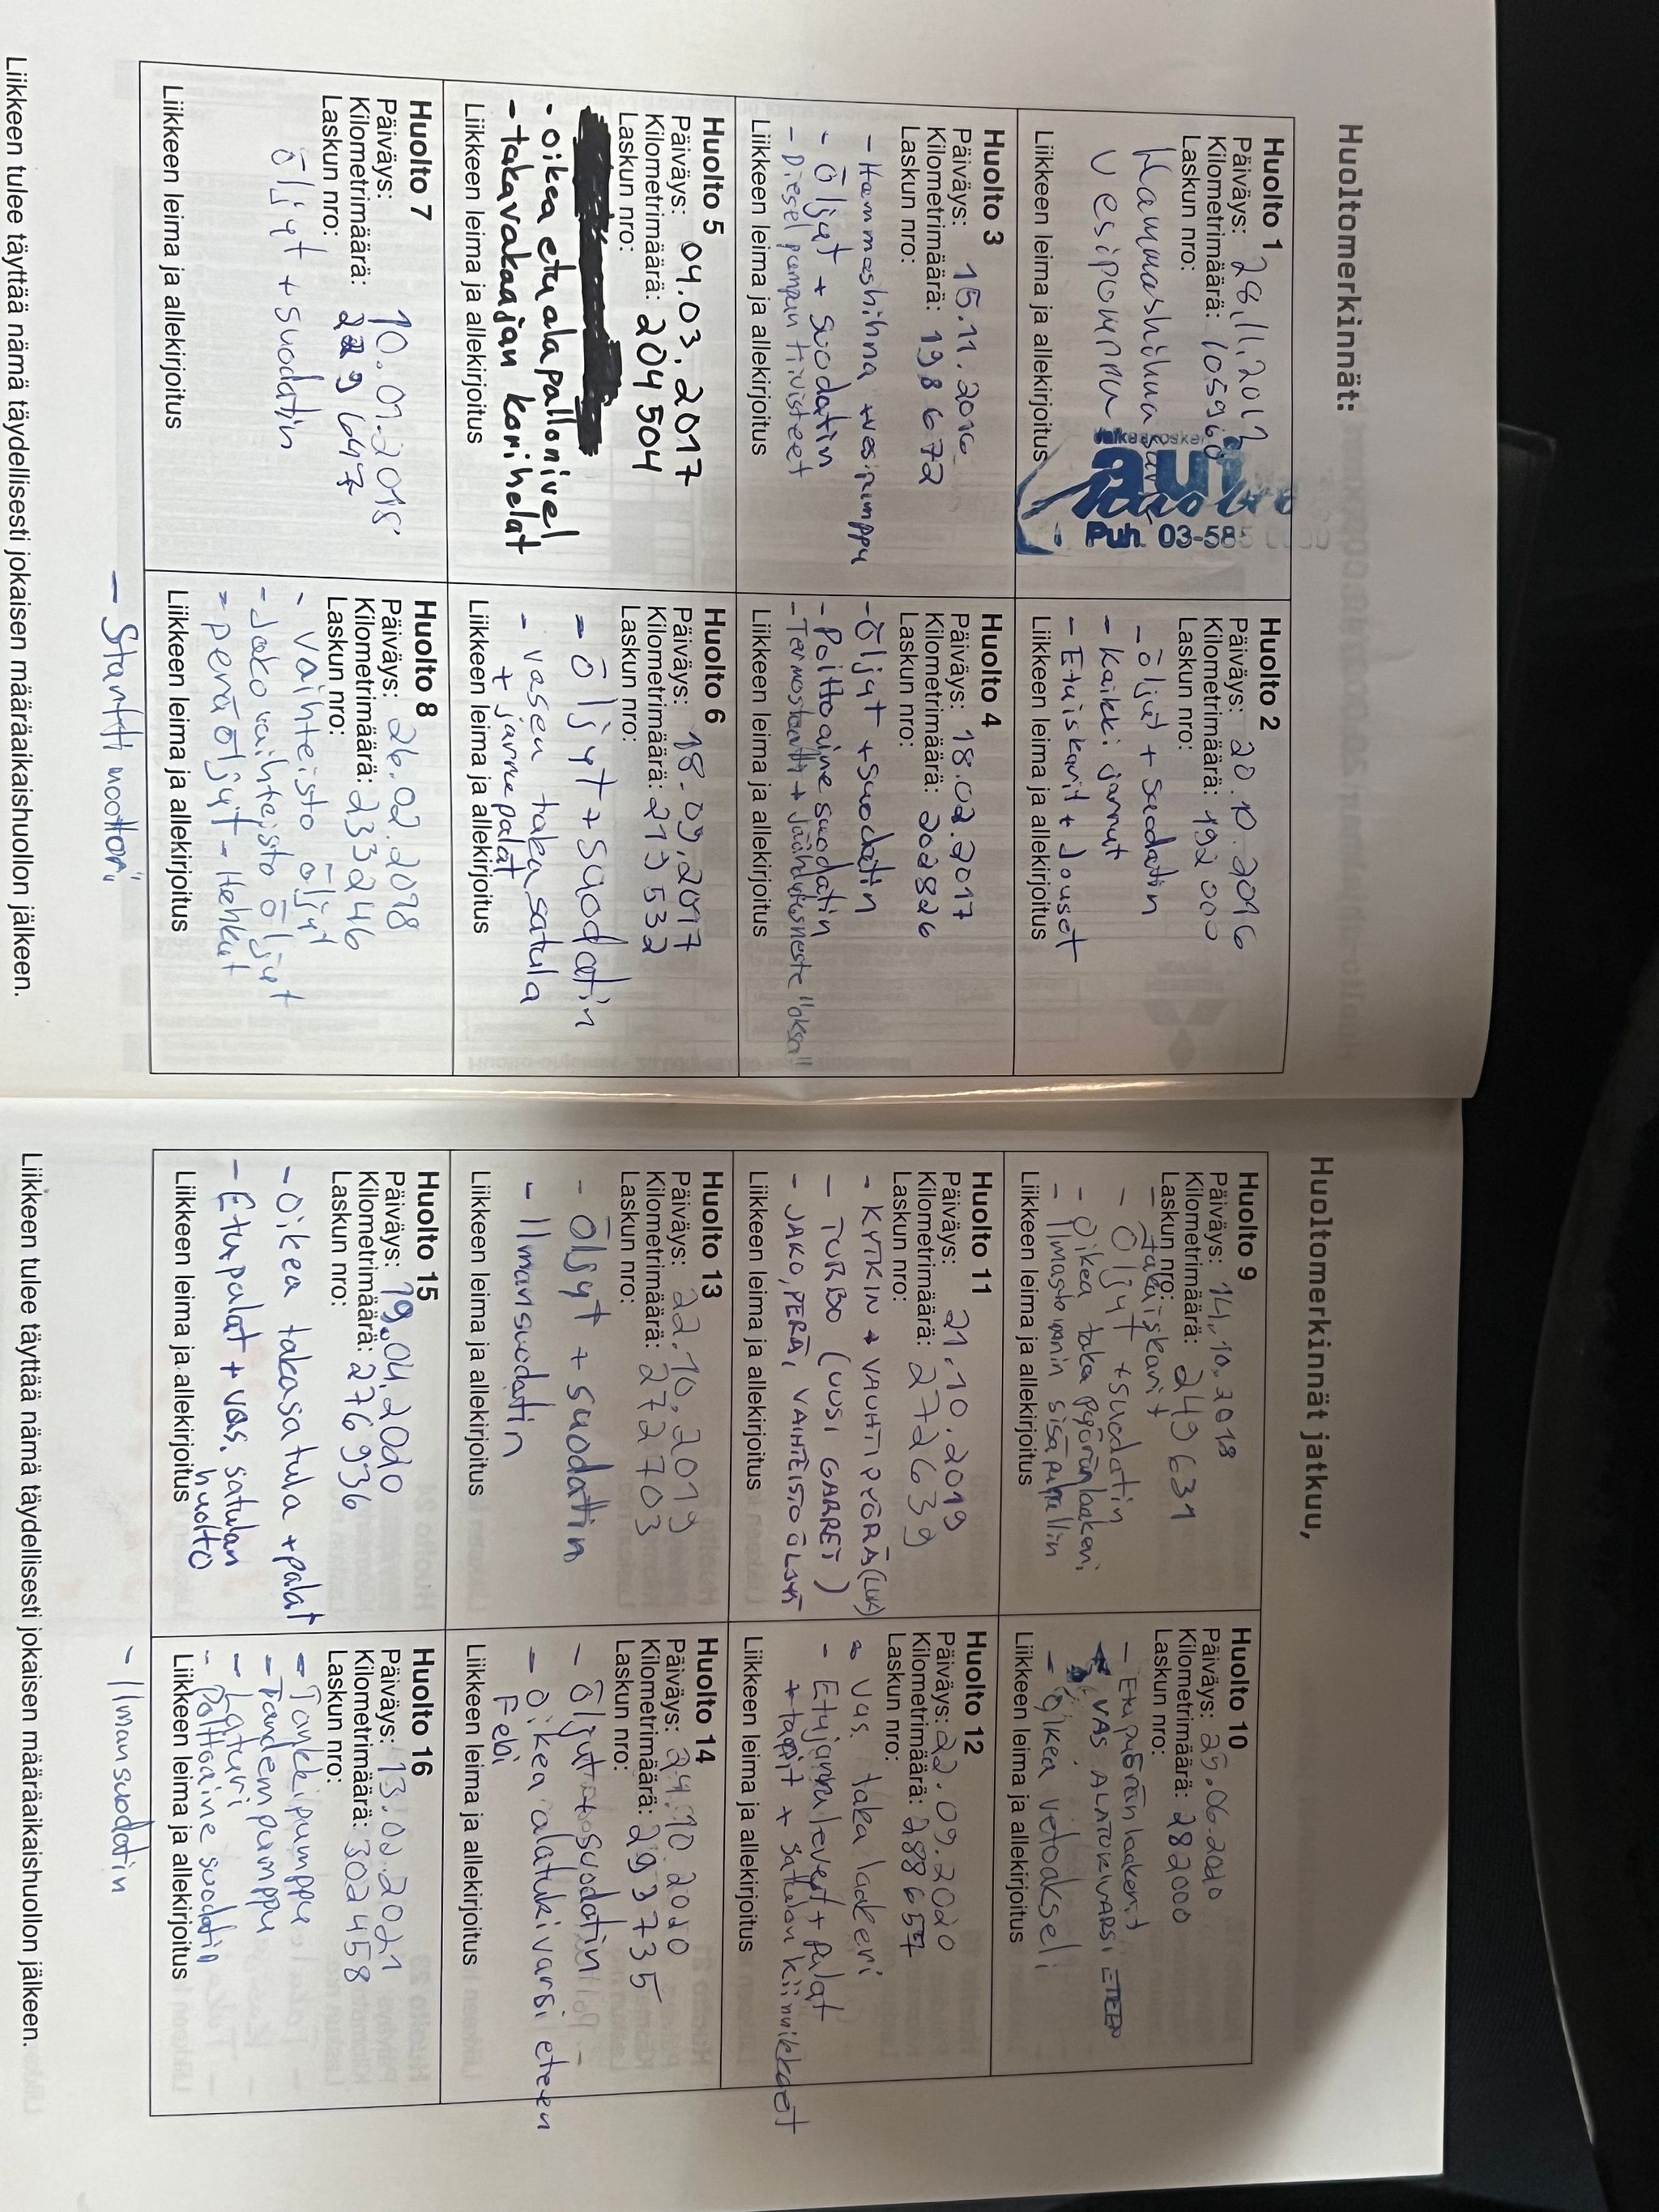 Huoltomerkinnät:
Huolto 1
Päiväys: 28.11.2012
Kilometrimäärä: 105960
Laskun nro:
Hammashihna sar
Vesipumppu
Liikkeen leima ja allekirjoitus
Valkeakosken
auto
huolto
Puh. 03-585
Huolto 2
Päiväys: 20.10.2016
Kilometrimäärä: 192 000
Laskun nro:
- öljyt + suodatin
- kaikki jarrut
- Etuiskarit + Jouset
Liikkeen leima ja allekirjoitus
Huolto 3
Päiväys: 15.11.2016
Kilometrimäärä: 198 672
Laskun nro:
- Hammashihna + vesipumppu
- Öljyt + suodatin
- Diesel pumpun tiivisteet
Liikkeen leima ja allekirjoitus
Huolto 4
Päiväys: 18.02.2017
Kilometrimäärä: 202826
Laskun nro:
- Öljyt + suodatin
- Polttoaine suodatin
- Termostaatti + Jäähdytysneste "oksa"
Liikkeen leima ja allekirjoitus
Huolto 5
Päiväys: 04.03.2017
Kilometrimäärä: 204 504
Laskun nro:
- oikea etu alapallonivel
- takavakaajan korihelat
Liikkeen leima ja allekirjoitus
Huolto 6
Päiväys: 18.09.2017
Kilometrimäärä: 219 532
Laskun nro:
- Öljyt + suodatin
- vasen takasatula
+ jarrupalat
Liikkeen leima ja allekirjoitus
Huolto 7
Päiväys: 10.01.2018
Kilometrimäärä: 229 647
Laskun nro:
Öljyt + suodatin
Liikkeen leima ja allekirjoitus
Huolto 8
Päiväys: 26.02.2018
Kilometrimäärä: 233246
Laskun nro:
- Vaihteisto öljyt
- Jakovaihteisto Öljyt
- perä öljyt - Hehkut
Liikkeen leima ja allekirjoitus
- Startti moottori
Liikkeen tulee täyttää nämä täydellisesti jokaisen määräaikaishuollon jälkeen.
Huoltomerkinnät jatkuu,
Huolto 9
Päiväys: 14.10.2018
Kilometrimäärä: 249 631
Laskun nro:
- Takaiskarit
- Öljyt + suodatin
- Oikea taka pyörän laakeri
- Ilmastoinnin sisäpuhallin
Liikkeen leima ja allekirjoitus
Huolto 10
Päiväys: 25.06.2020
Kilometrimäärä: 282000
Laskun nro:
- Etupyöränlaakerit
- VAS ALATUKIVARSI ETEEN
- Oikea vetoakseli
Liikkeen leima ja allekirjoitus
Huolto 11
Päiväys: 21.10.2019
Kilometrimäärä: 272639
Laskun nro:
- KYTKIN + VAUHTIPYÖRÄ (LUK)
- TURBO (UUSI GARRET)
- JAKO, PERÄ, VAIHTEISTO ÖLJYT
Liikkeen leima ja allekirjoitus
Huolto 12
Päiväys: 22.09.2020
Kilometrimäärä: 288657
Laskun nro:
- Vas. taka laakeri
- Etujarrulevyt + Palat
+ tapit + satulan kiinnikkeet
Liikkeen leima ja allekirjoitus
Huolto 13
Päiväys: 22.10.2019
Kilometrimäärä: 272 703
Laskun nro:
- Öljyt + suodatin
- Ilmansuodatin
Liikkeen leima ja allekirjoitus
Huolto 14
Päiväys: 24.10.2020
Kilometrimäärä: 293735
Laskun nro:
- Öljyt + suodatin
- Oikea alatukivarsi eteen
Febi
Liikkeen leima ja allekirjoitus
Huolto 15
Päiväys: 19.04.2020
Kilometrimäärä: 276936
Laskun nro:
- Oikea takasatula + palat
- Etupalat + vas. satulan
huolto
Liikkeen leima ja allekirjoitus
Huolto 16
Päiväys: 13.02.2021
Kilometrimäärä: 302458
Laskun nro:
- Tankkipumppu
- Tandempumppu
- Laturi
- Polttoaine suodatin
Liikkeen leima ja allekirjoitus
- Ilmansuodatin
Liikkeen tulee täyttää nämä täydellisesti jokaisen määräaikaishuollon jälkeen.